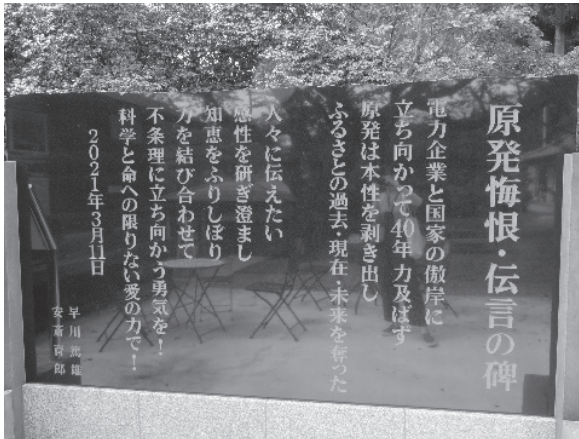 原発悔恨・伝言の碑
電力企業と国家の傲岸に
立ち向かって40年力及ばず
原発は本性を剥き出し
ふるさとの過去・現在・未来を奪った
人々に伝えたい
感性を研ぎ澄まし
知恵をふりしぼり
力を結び合わせて
不条理に立ち向かう勇気を！
科学と命への限りない愛の力で！
2021年3月11日
早川篤雄
安斎育郎